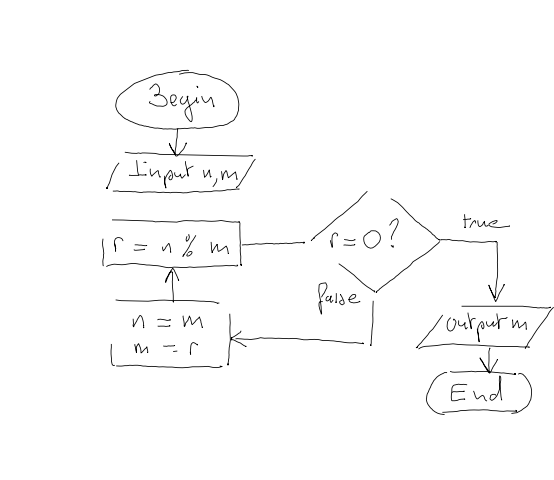 Begin
Input n,m
r = n % m
r = 0?
true
false
n = m
m = r
output m
End